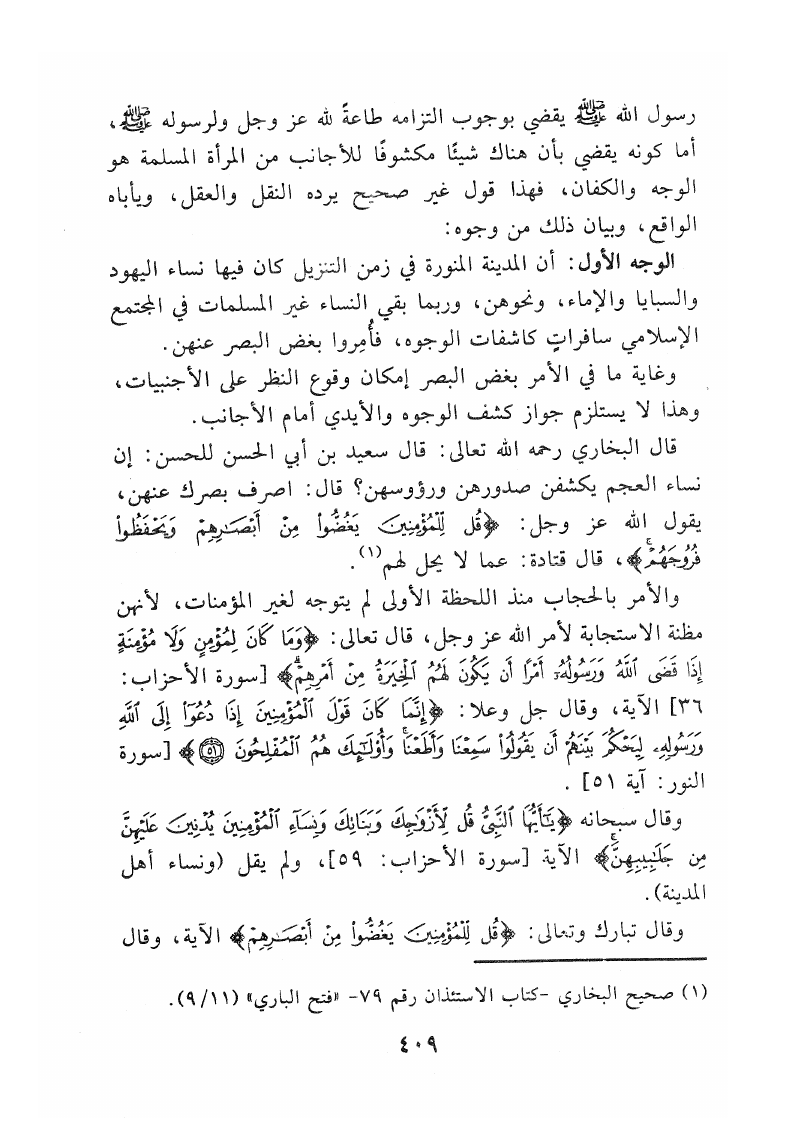 رسول الله ﷺ يقضي بوجوب التزامه طاعةً لله عز وجل ولرسوله ﷺ،
أما كونه يقضي بأن هناك شيئًا مكشوفًا للأجانب من المرأة المسلمة هو
الوجه والكفان، فهذا قول غير صحيح يرده النقل والعقل، ويأباه
الواقع، وبيان ذلك من وجوه:
الوجه الأول: أن المدينة المنورة في زمن التنزيل كان فيها نساء اليهود
والسبايا والإماء، ونحوهن، وربما بقي النساء غير المسلمات في المجتمع
الإسلامي سافراتٍ كاشفات الوجوه، فأُمِروا بغض البصر عنهن.
وغاية ما في الأمر بغض البصر إمكان وقوع النظر على الأجنبيات،
وهذا لا يستلزم جواز كشف الوجوه والأيدي أمام الأجانب.
قال البخاري رحمه الله تعالى: قال سعيد بن أبي الحسن للحسن: إن
نساء العجم يكشفن صدورهن ورؤوسهن؟ قال: اصرف بصرك عنهن،
يقول الله عز وجل: ﴿قُل لِّلْمُؤْمِنِينَ يَغُضُّواْ مِنْ أَبْصَٰرِهِمْ وَيَحْفَظُواْ
فُرُوجَهُمْ﴾، قال قتادة: عما لا يحل لهم(١).
والأمر بالحجاب منذ اللحظة الأولى لم يتوجه لغير المؤمنات، لأنهن
مظنة الاستجابة لأمر الله عز وجل، قال تعالى: ﴿وَمَا كَانَ لِمُؤْمِنٍ وَلَا مُؤْمِنَةٍ
إِذَا قَضَى ٱللَّهُ وَرَسُولُهُۥٓ أَمْرًا أَن يَكُونَ لَهُمُ ٱلْخِيَرَةُ مِنْ أَمْرِهِمْ﴾ [سورة الأحزاب:
٣٦] الآية، وقال جل وعلا: ﴿إِنَّمَا كَانَ قَوْلَ ٱلْمُؤْمِنِينَ إِذَا دُعُوٓاْ إِلَى ٱللَّهِ
وَرَسُولِهِۦ لِيَحْكُمَ بَيْنَهُمْ أَن يَقُولُواْ سَمِعْنَا وَأَطَعْنَا وَأُوْلَٰٓئِكَ هُمُ ٱلْمُفْلِحُونَ ۝٥١﴾ [سورة
النور: آية ٥١] .
وقال سبحانه ﴿يَٰٓأَيُّهَا ٱلنَّبِىُّ قُل لِّأَزْوَٰجِكَ وَبَنَاتِكَ وَنِسَآءِ ٱلْمُؤْمِنِينَ يُدْنِينَ عَلَيْهِنَّ
مِن جَلَٰبِيبِهِنَّ﴾ الآية [سورة الأحزاب: ٥٩]، ولم يقل (ونساء أهل
المدينة).
وقال تبارك وتعالى: ﴿قُل لِّلْمُؤْمِنِينَ يَغُضُّواْ مِنْ أَبْصَٰرِهِمْ﴾ الآية، وقال
(١) صحيح البخاري -كتاب الاستئذان رقم ٧٩- «فتح الباري» (٩/١١).
٤٠٩